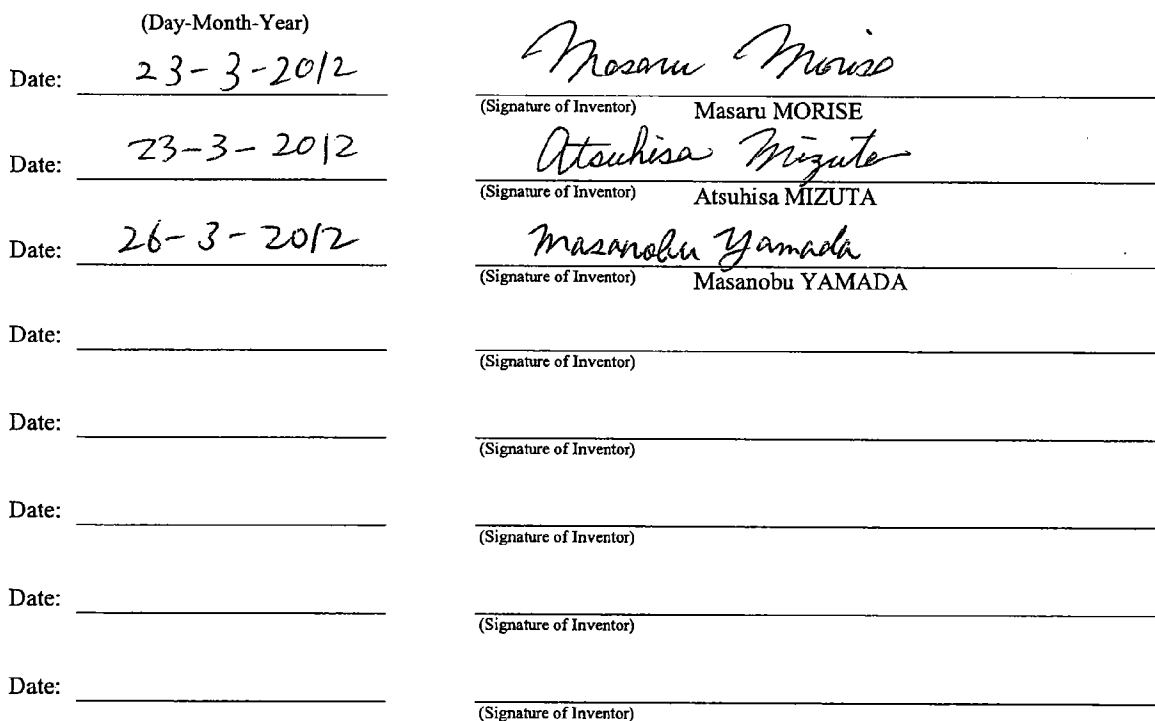 (Day-Month-Year)
Date: 23-3-2012 Masaru Morise
(Signature of Inventor) Masaru MORISE
Date: 23-3-2012 Atsuhisa Mizuta
(Signature of Inventor) Atsuhisa MIZUTA
Date: 26-3-2012 Masanobu Yamada
(Signature of Inventor) Masanobu YAMADA
Date:
(Signature of Inventor)
Date:
(Signature of Inventor)
Date:
(Signature of Inventor)
Date:
(Signature of Inventor)
Date:
(Signature of Inventor)